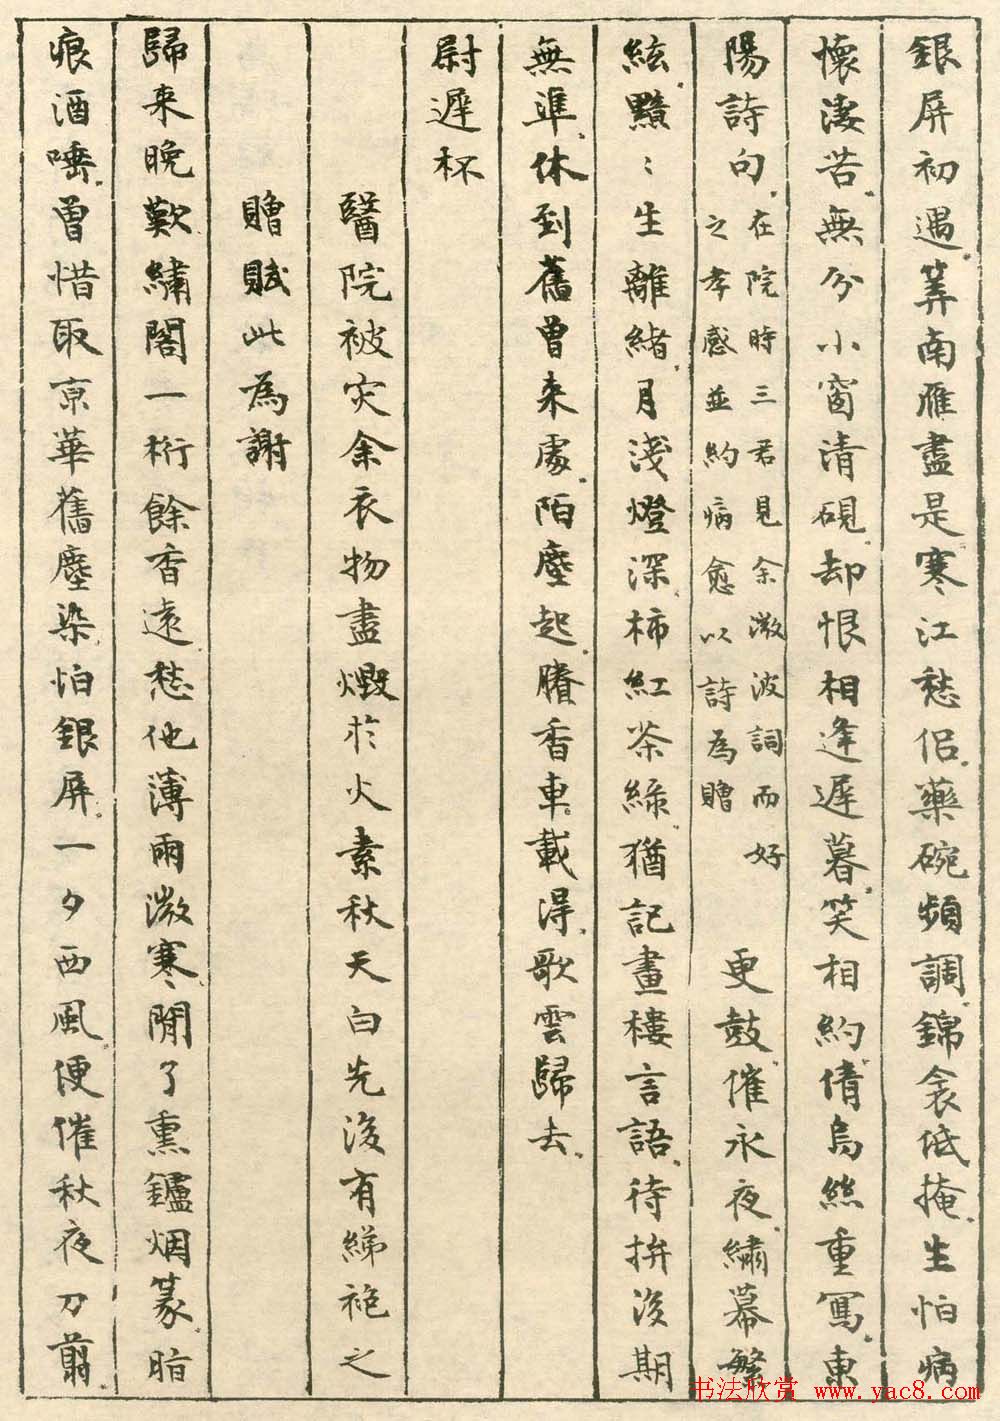 銀屏初遇。筭南雁盡是寒江愁侣。藥碗頻調。錦衾低掩。生怕病
懷淒苦。無分小窗清硯。却恨相逢遲暮。笑相約倩烏絲重寫。東
陽詩句。在院時三君見余微波詞而好之孝感並約病愈以詩為贈 更鼓催永夜。繡幕繁
絃。黯〻生離緒。月淺燈深。柿紅茶綠。猶記畫樓言語。待拚後期
無準。休到舊曾来處。陌塵起。賸香車載得。歌雲歸去。
尉遲杯
醫院被灾余衣物盡燬於火素秋天白先後有綈袍之
贈賦此為謝
歸来晚。歎繡閣一桁餘香遠。愁他薄雨微寒。閒了熏鑪烟篆。暗
痕酒唾。曾惜取京華舊塵染。怕銀屏一夕西風。便催秋夜刀翦。
书法欣赏 www.yac8.com